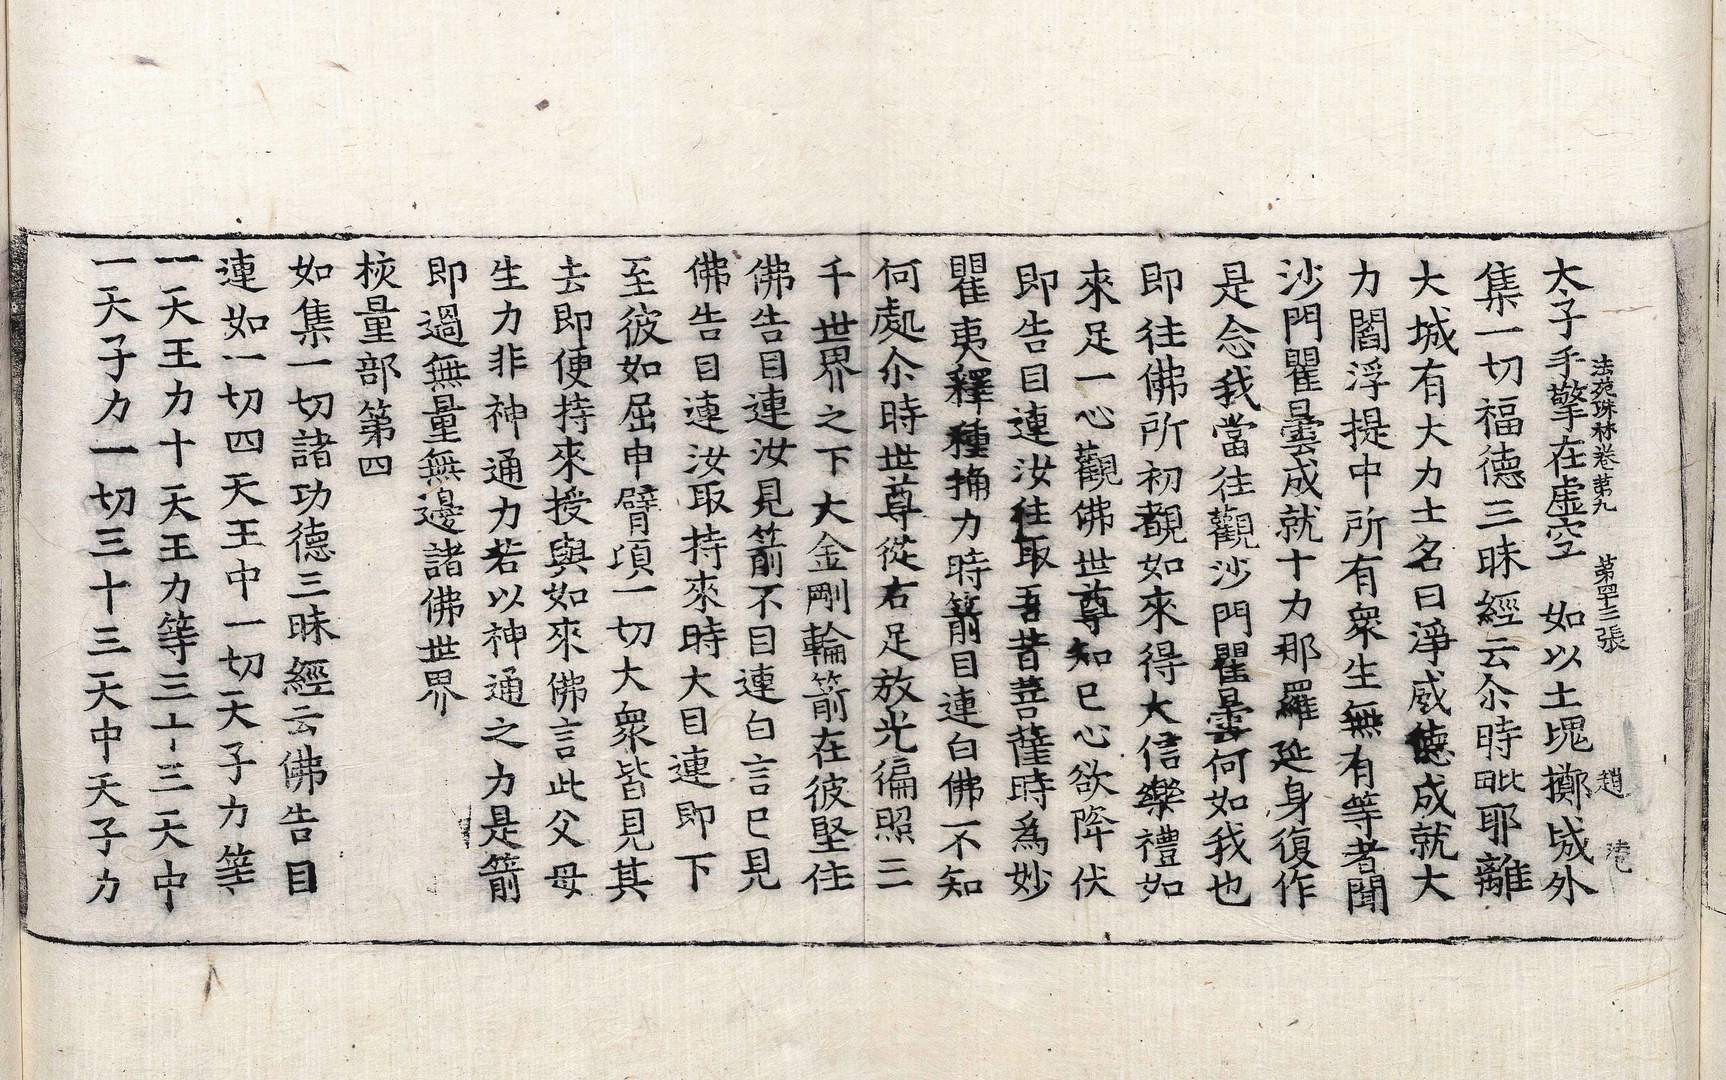 法苑珠林卷第九　第四十三張　趙　
太子手擎在虛空　如以土塊擲城外
集一切福德三昧經云尒時毗耶離
大城有大力士名曰淨威德成就大
力閻浮提中所有衆生無有等者聞
沙門瞿曇成就十力那羅延身復作
是念我當往觀沙門瞿曇何如我也
即往佛所初覩如來得大信樂禮如
來足一心觀佛世尊知已心欲降伏
即告目連汝往取吾昔菩薩時爲妙
瞿夷釋種捔力時箭目連白佛不知
何處尒時世尊從右足放光徧照三
千世界之下大金剛輪箭在彼堅住
佛告目連汝見箭不目連白言已見
佛告目連汝取持來時大目連即下
至彼如屈申臂項一切大衆皆見其
去即便持來授與如來佛言此父母
生力非神通力若以神通之力是箭
即過無量無邊諸佛世界
校量部第四
如集一切諸功德三昧經云佛告目
連如一切四天王中一切天子力等
一天王力十天王力等三十三天中
一天子力一切三十三天中天子力